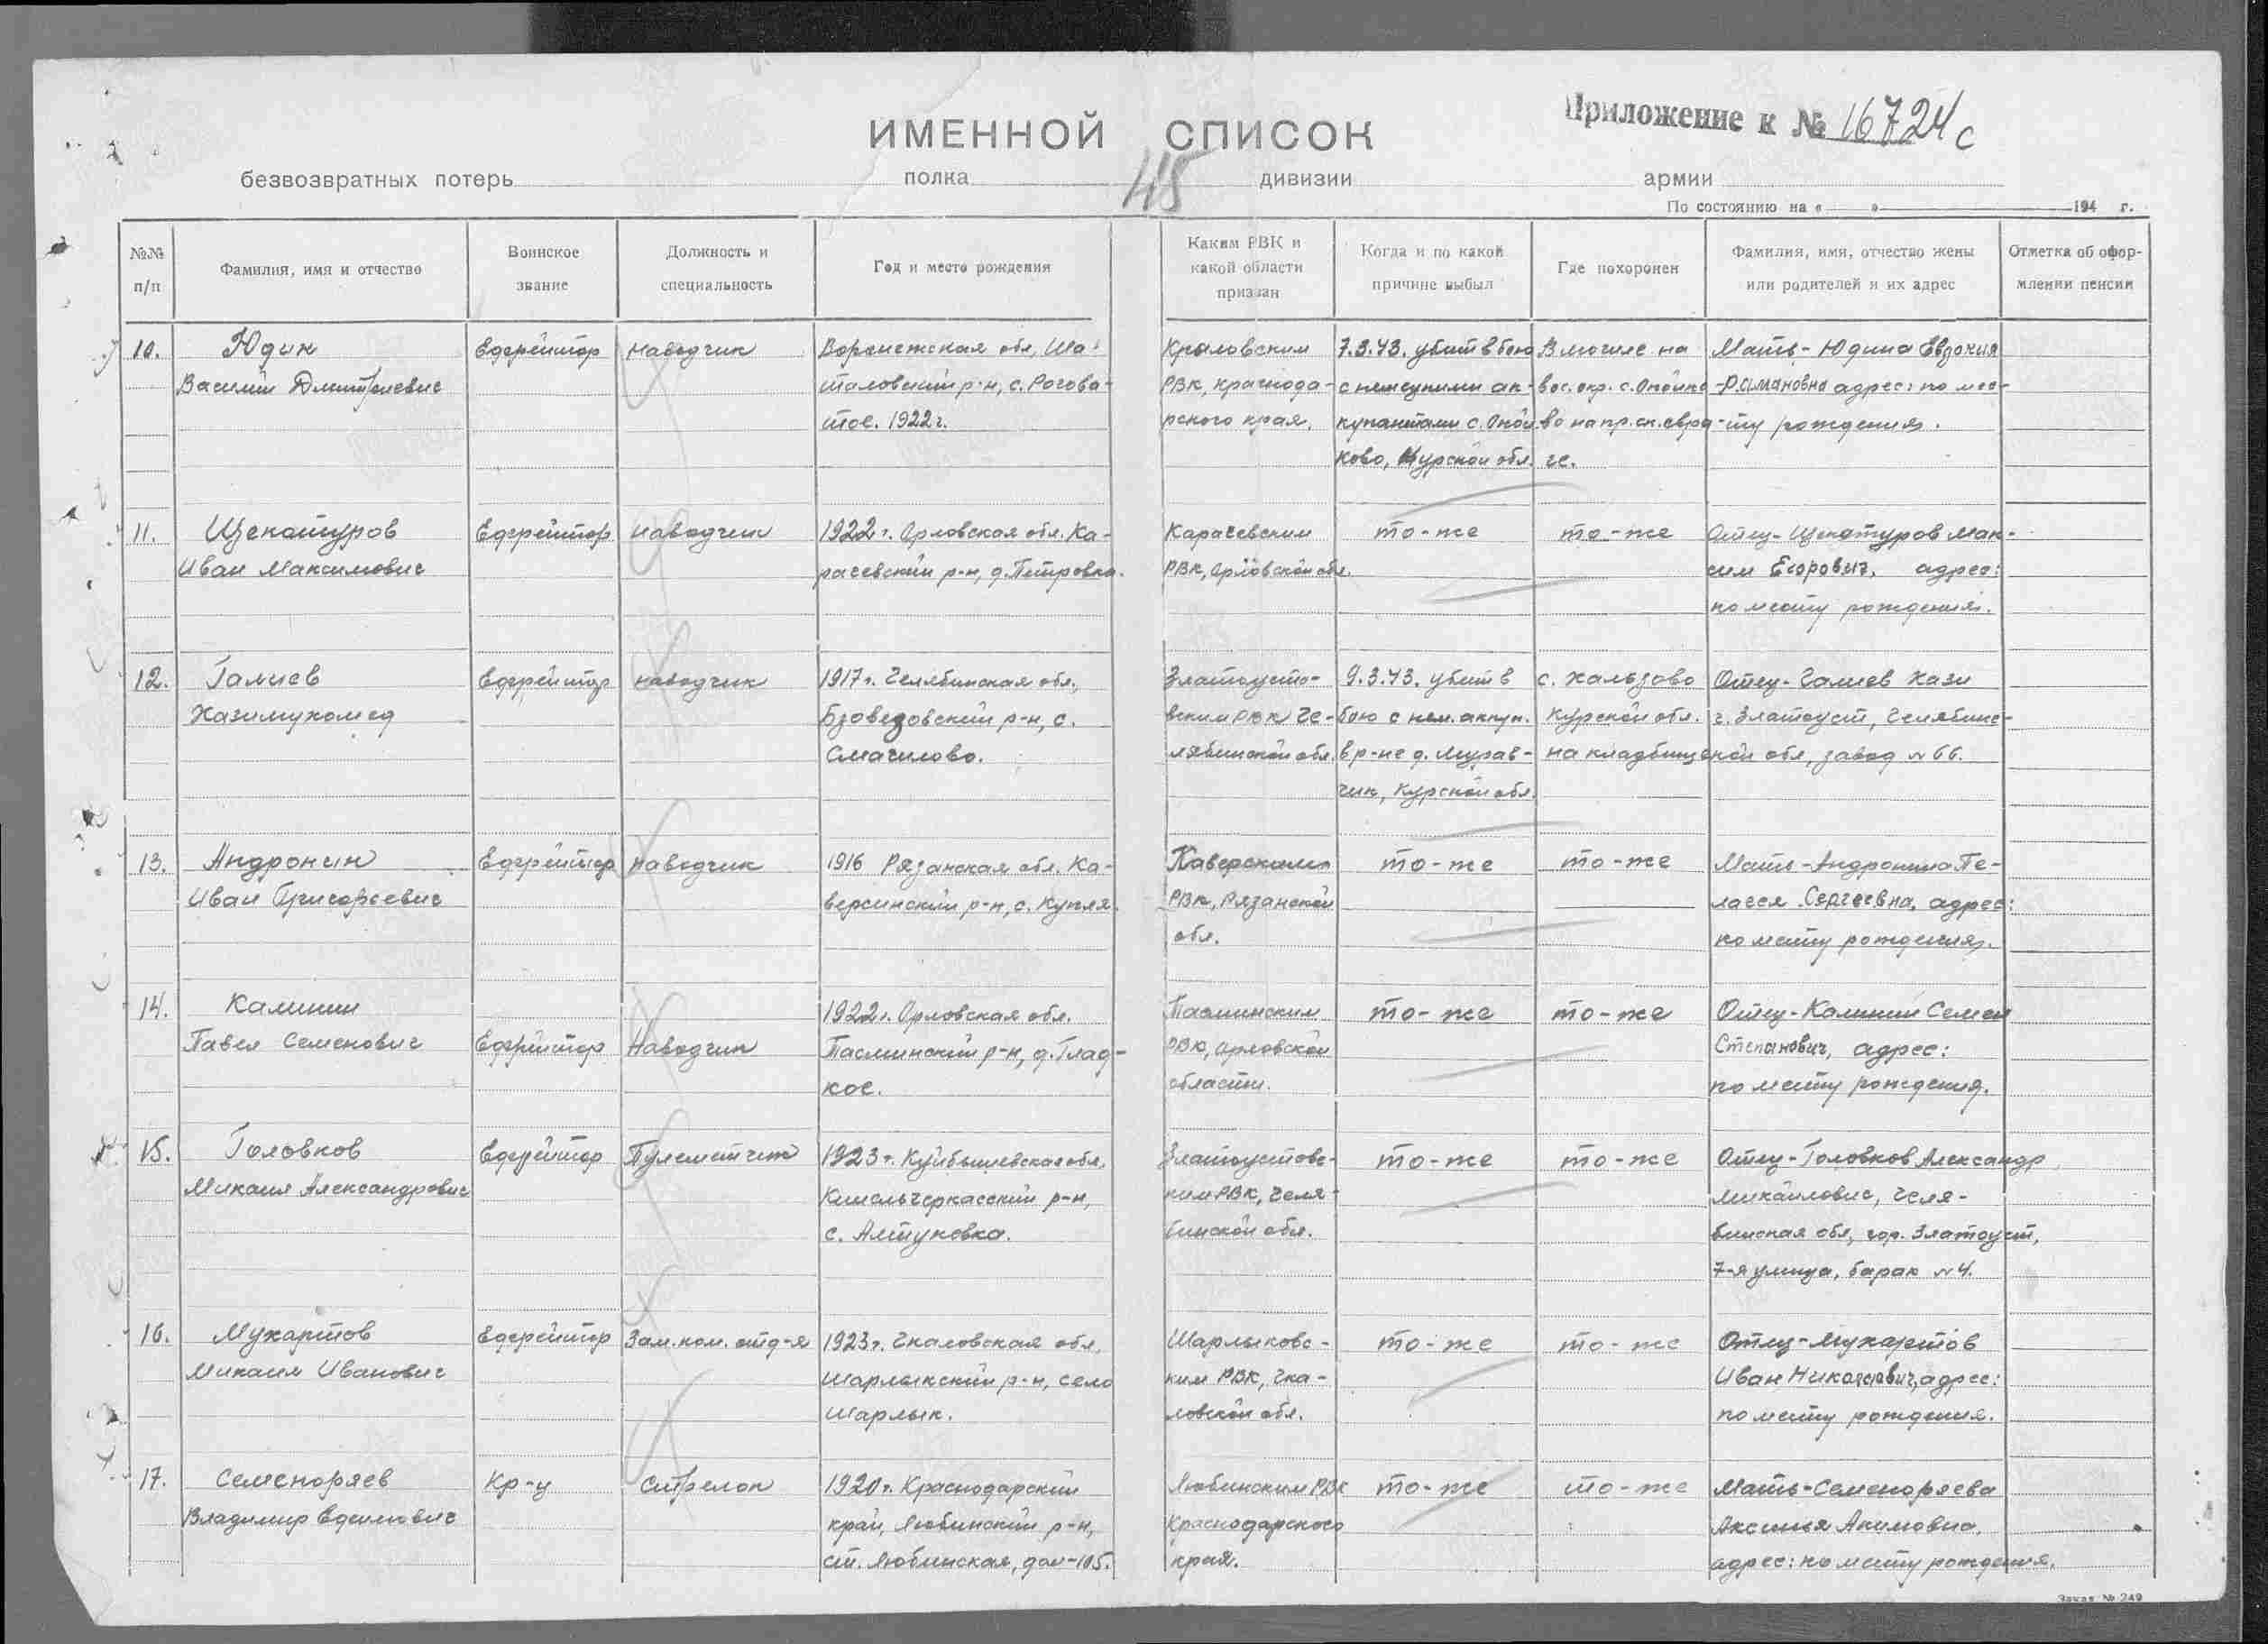 Приложение к № 16724с
ИМЕННОЙ СПИСОК
безвозвратных потерь полка 48 дивизии армии
По состоянию на « » 194 г.
№№ п/п
Фамилия, имя и отчество
Воинское звание
Должность и специальность
Год и место рождения
Каким РВК и какой области призван
Когда и по какой причине выбыл
Где похоронен
Фамилия, имя, отчество жены или родителей и их адрес
Отметка об оформлении пенсии
10. Юдин Ефрейтор наводчик Воронежская обл, Ша- Крыловским 7.3.43. убит в бою В могиле на Мать - Юдина Евдокия
Василий Дмитриевич таловский р-н, с. Рогова- РВК, Краснода- с немецкими ок- вос. окр. с. -Романовна адрес: по мес-
тое. 1922 г. рского края. купантами с. во на пр. -ту рождения.
ково, Курской обл.
11. Щекатуров Ефрейтор наводчик 1922 г. Орловская обл. Ка- Карачевским то-же то-же Отец - Щекатуров Мак-
Иван Максимович рачевский р-н, д. Петровка. РВК, Орловской обл. сим Егорович, адрес:
по месту рождения.
12. Галиев Ефрейтор наводчик 1917 г. Челябинская обл, Златоусто- 9.3.43. убит в с. Хальзово Отец - Галиев Хази
Хазимухомед р-н, с. вским РВК Че- бою с нем. оккуп. Курской обл. г. Златоуст, Челябинс-
Смагилово. лябинской обл. в р-не д. Мурав- на кладбище кой обл, завод №66.
чик, Курской обл.
13. Андронин Ефрейтор наводчик 1916 Рязанская обл. Ка- то-же то-же Мать - Андронина Пе-
Иван Григорьевич веринский р-н, с. Купля. РВК, Рязанской лагея Сергеевна, адрес:
обл. по месту рождения.
14. Калинин 1922 г. Орловская обл. то-же то-же Отец - Калинин Семен
Павел Семенович Ефрейтор Наводчик р-н, д. Глад- РВК, Орловской Степанович, адрес:
кое. области. по месту рождения.
15. Головков Ефрейтор Пулеметчик 1923 г. Куйбышевская обл, Златоустовс- то-же то-же Отец - Головков Александр
Михаил Александрович Кинельчеркасский р-н, ким РВК, Челя- Михайлович, Челя-
с. Алтуховка. бинской обл. бинская обл, гор. Златоуст,
7-я улица, барак №4.
16. Мухартов Ефрейтор Зам. ком. отд-я 1923 г. Чкаловская обл, Шарлыковс- то-же то-же Отец - Мухартов
Михаил Иванович Шарлыкский р-н, село ким РВК, Чка- Иван Николаевич, адрес:
Шарлык. ловской обл. по месту рождения.
17. Семеноряев Кр-ц Стрелок 1920 г. Краснодарский РВК то-же то-же Мать - Семеноряева
Владимир край, р-н, Краснодарского Аксинья Акимовна,
ст. дом-105. края. адрес: по месту рождения.
Заказ № 249